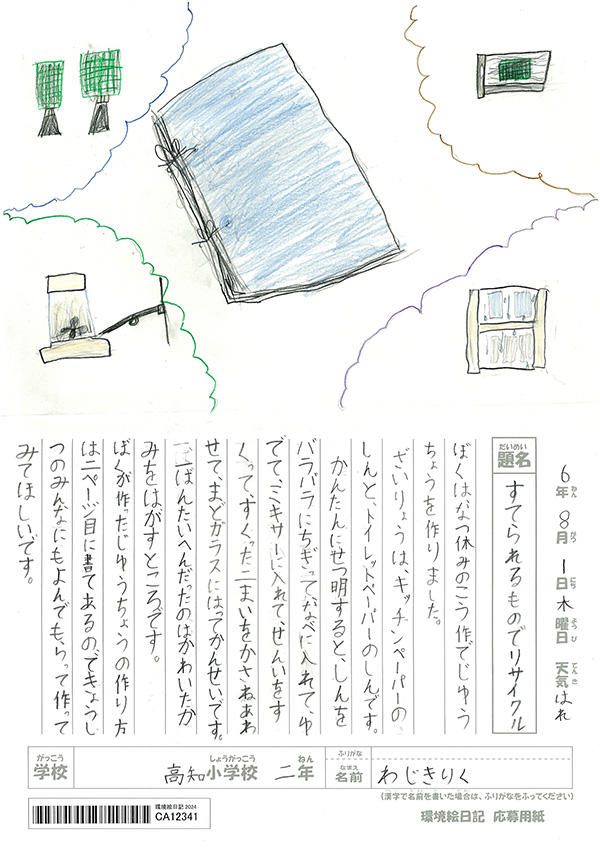 6年 8月 1日 木曜日 天気 はれ
ねん がつ にち ようび てんき
だいめい
題名 すてられるものでリサイクル
ぼくはなつ休みのこう作でじゆう
ちょうを作りました。
ざいりょうは、キッチンペーパーの
しんと、トイレットペーパーのしんです。
かんたんにせつ明すると、しんを
バラバラにちぎってなべに入れて、ゆ
でて、ミキサーに入れて、せんいをす
くって、すくった二まいをかさねあわ
せて、まどガラスにはってかんせいです。
一ばんたいへんだったのはかわいたか
みをはがすところです。
ぼくが作ったじゆうちょうの作り方
は二ページ目に書てあるのできょうし
つのみんなにもよんでもらって作って
みてほしいです。
がっこう しょうがっこう ねん ふりがな
学校 高知小学校 二年 なまえ 名前 わじきりく
(漢字で名前を書いた場合は、ふりがなをふってください)
環境絵日記 2024
CA12341
環境絵日記 応募用紙